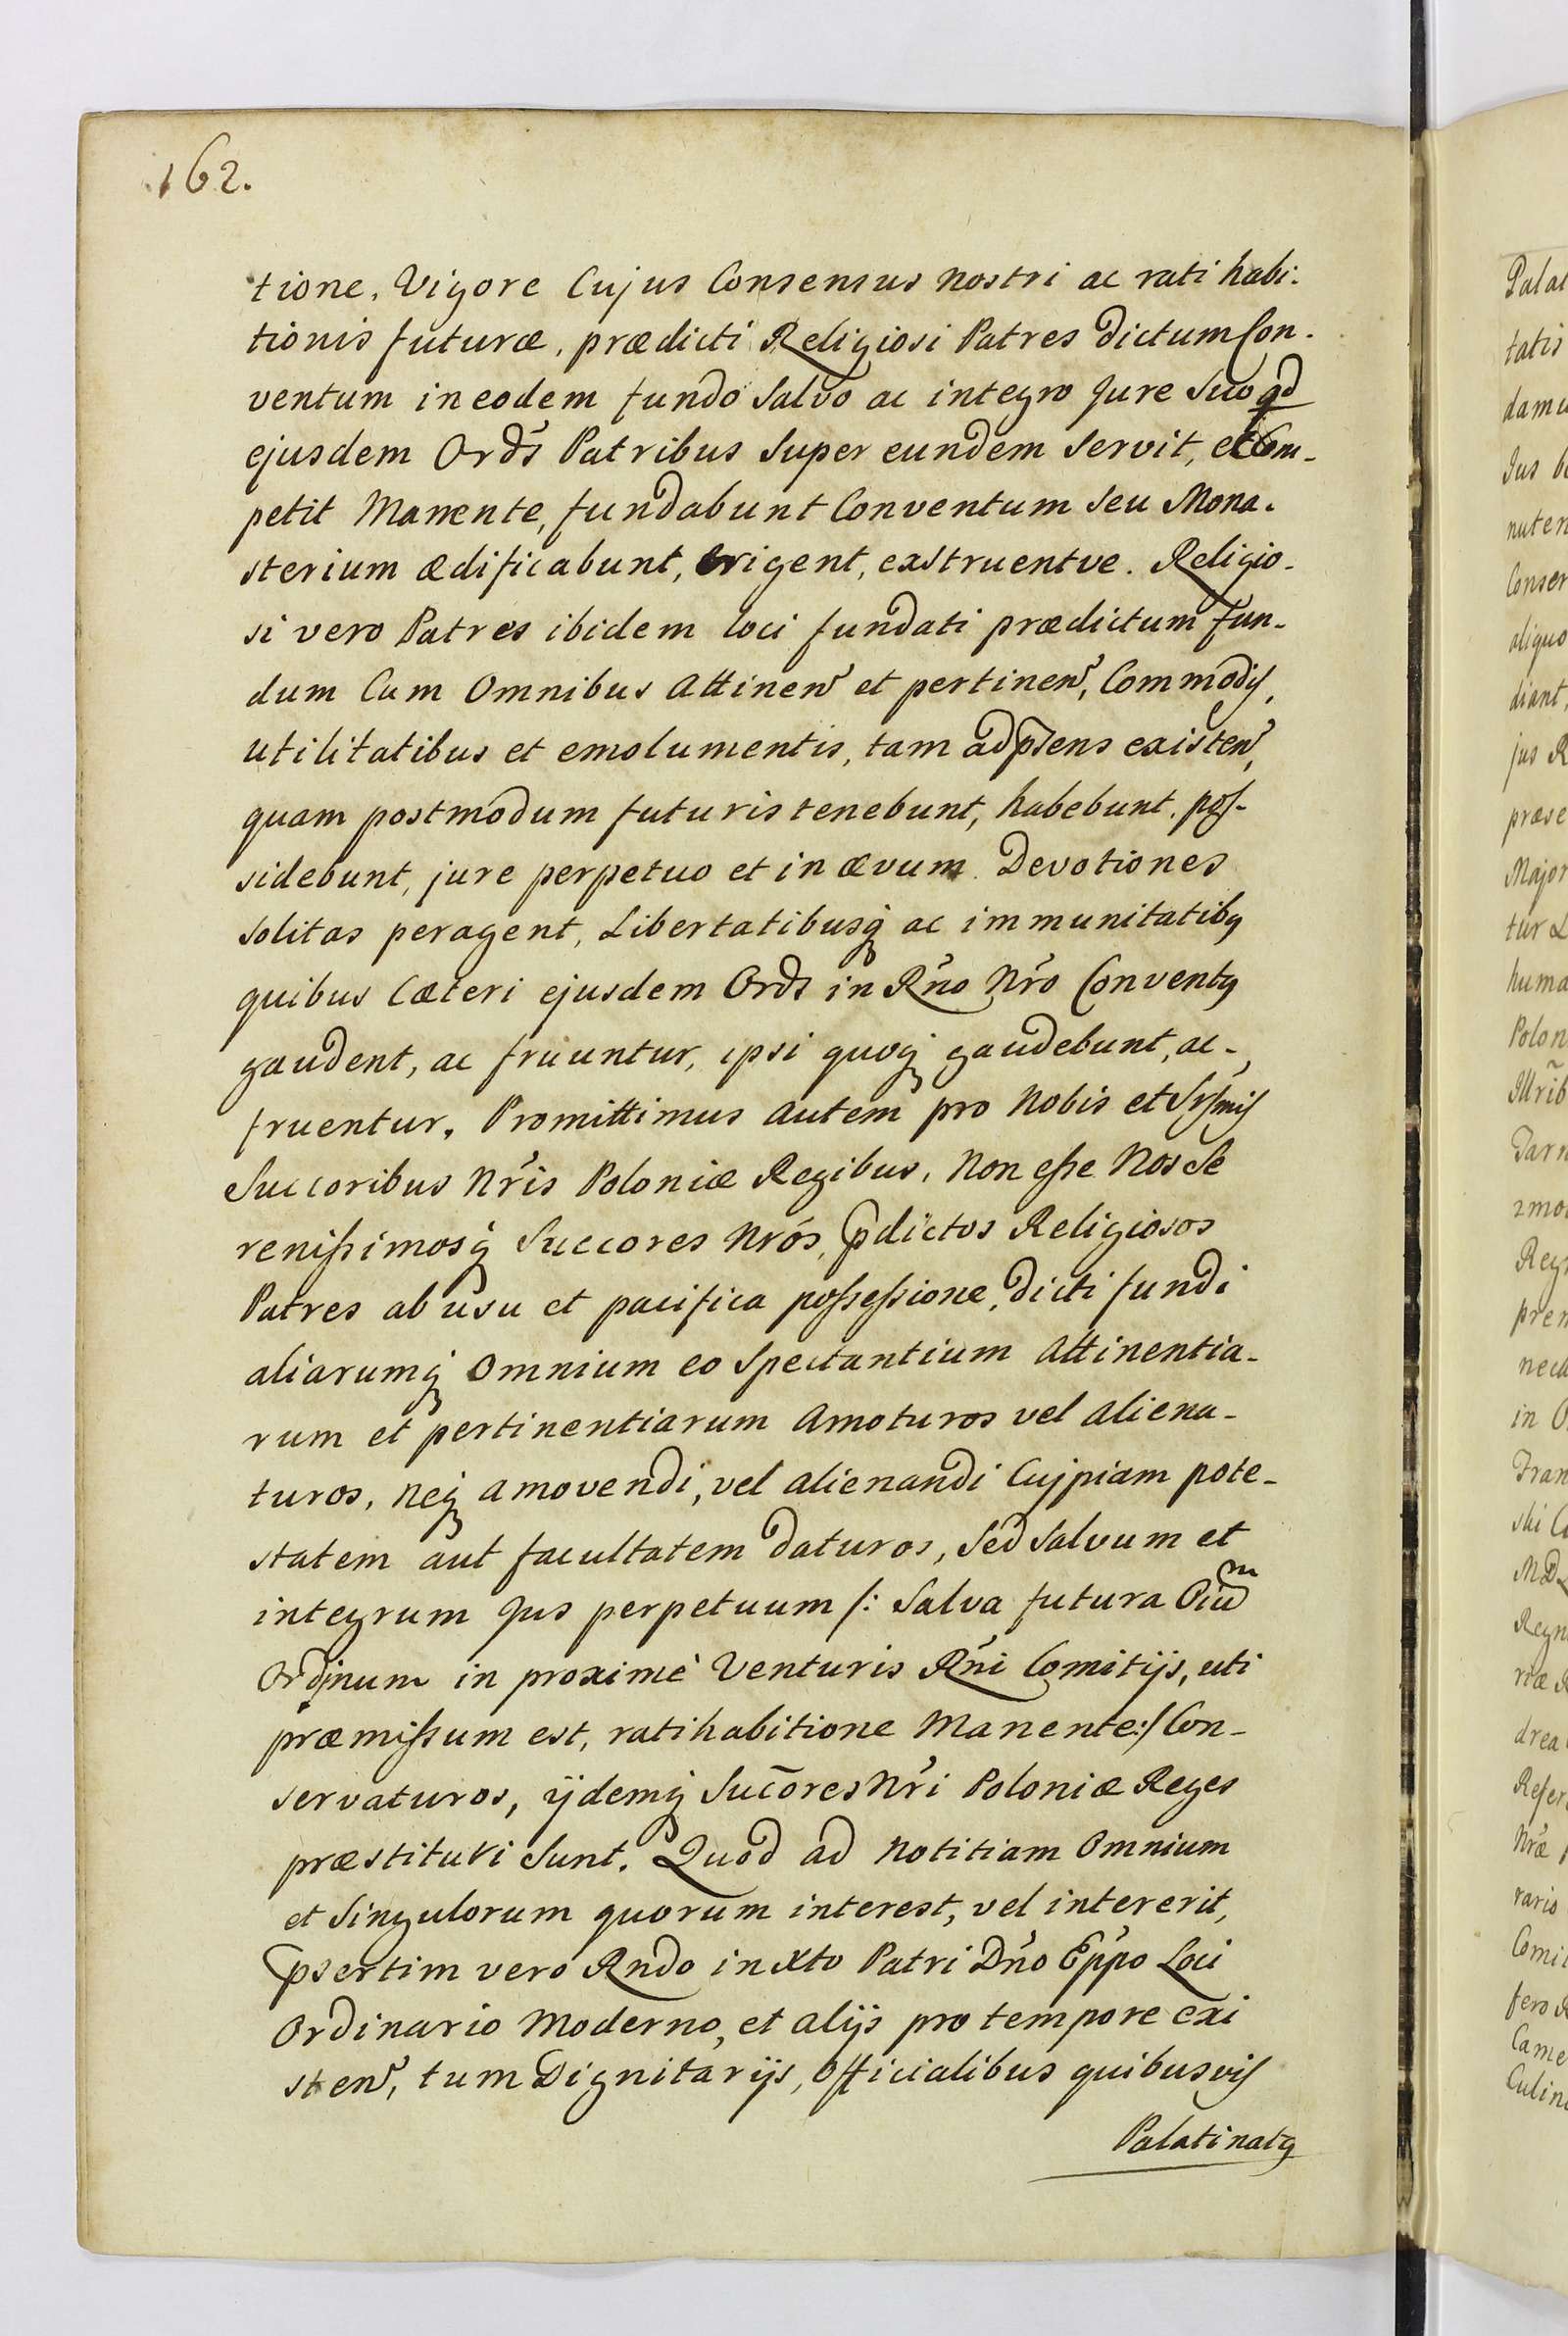 162.
tione. Vigore Cujus Consensus nostri ac rati habi:
tionis futuræ, prædicti Religiosi Patres dictum Con-
ventum in eodem fundo Salvo ac integro Jure Suo qd
ejusdem Ord̃s Patribus Super eundem Servit, et Com-
petit Manente, fundabunt Conventum Seu Mona-
sterium ædificabunt, Erigent, exstruentve. Religio-
si vero Patres ibidem loci fundati prædictum fun-
dum Cum Omnibus Attinen̄ et pertinen̄, Commodis,
utilitatibus et emolumentis, tam ad p̃sens existen̄,
quam postmodum futuris tenebunt, habebunt, pos-
sidebunt, jure perpetuo et in ævum. Devotiones
solitas peragent, Libertatibusq̃ ac immunitatibꝯ
quibus Cæteri ejusdem Ord̃s in Rño Nrõ Conventꝯ
gaudent, ac fruuntur, ipsi quoq̃ gaudebunt, ac-
fruentur. Promittimus autem pro Nobis et Srſmis
Succoribus Nrĩs Poloniæ Regibus, Non eſse Nos Se
reniſsimosq̃ Succores Nrõs, p̃dictos Religiosos
Patres ab usu et pacifica poſseſsione, dicti fundi
aliarumq̃ Omnium eo Spectantium Attinentia-
rum et pertinentiarum Amoturos vel aliena-
turos, neq̃ amovendi, vel alienandi Cujpiam pote-
statem aut facultatem daturos, Sed Salvum et
integrum Jus perpetuum /: Salva futura Oiũm
Ordinum in proximè Venturis Rñi Comitijs, uti
præmiſsum est, ratihabitione Manente:/ Con-
servaturos, ijdemq̃ Suc̃ores Nrĩ Poloniæ Reges
præstituri Sunt. Quod ad Notitiam Omnium
et Singulorum quorum interest, vel intererit,
p̃sertim vero Rndo in Xto Patri Dño Ep̃po Loci
Ordinario Moderno, et alijs pro tempore exi
sten̄, tum Dignitarijs, Officialibus quibusvis
Palatinatꝯ
Palat
tatis
damu
Jus
nuten
Conser
aliquo
diant,
jus R
præse
Major
tur L
huma
Polon
Illr̃ib
Tarn
Regn
prem
in O
Fran
Regn
drea
Refer
Nrõe
rario
Comi
fero
Came
Culin